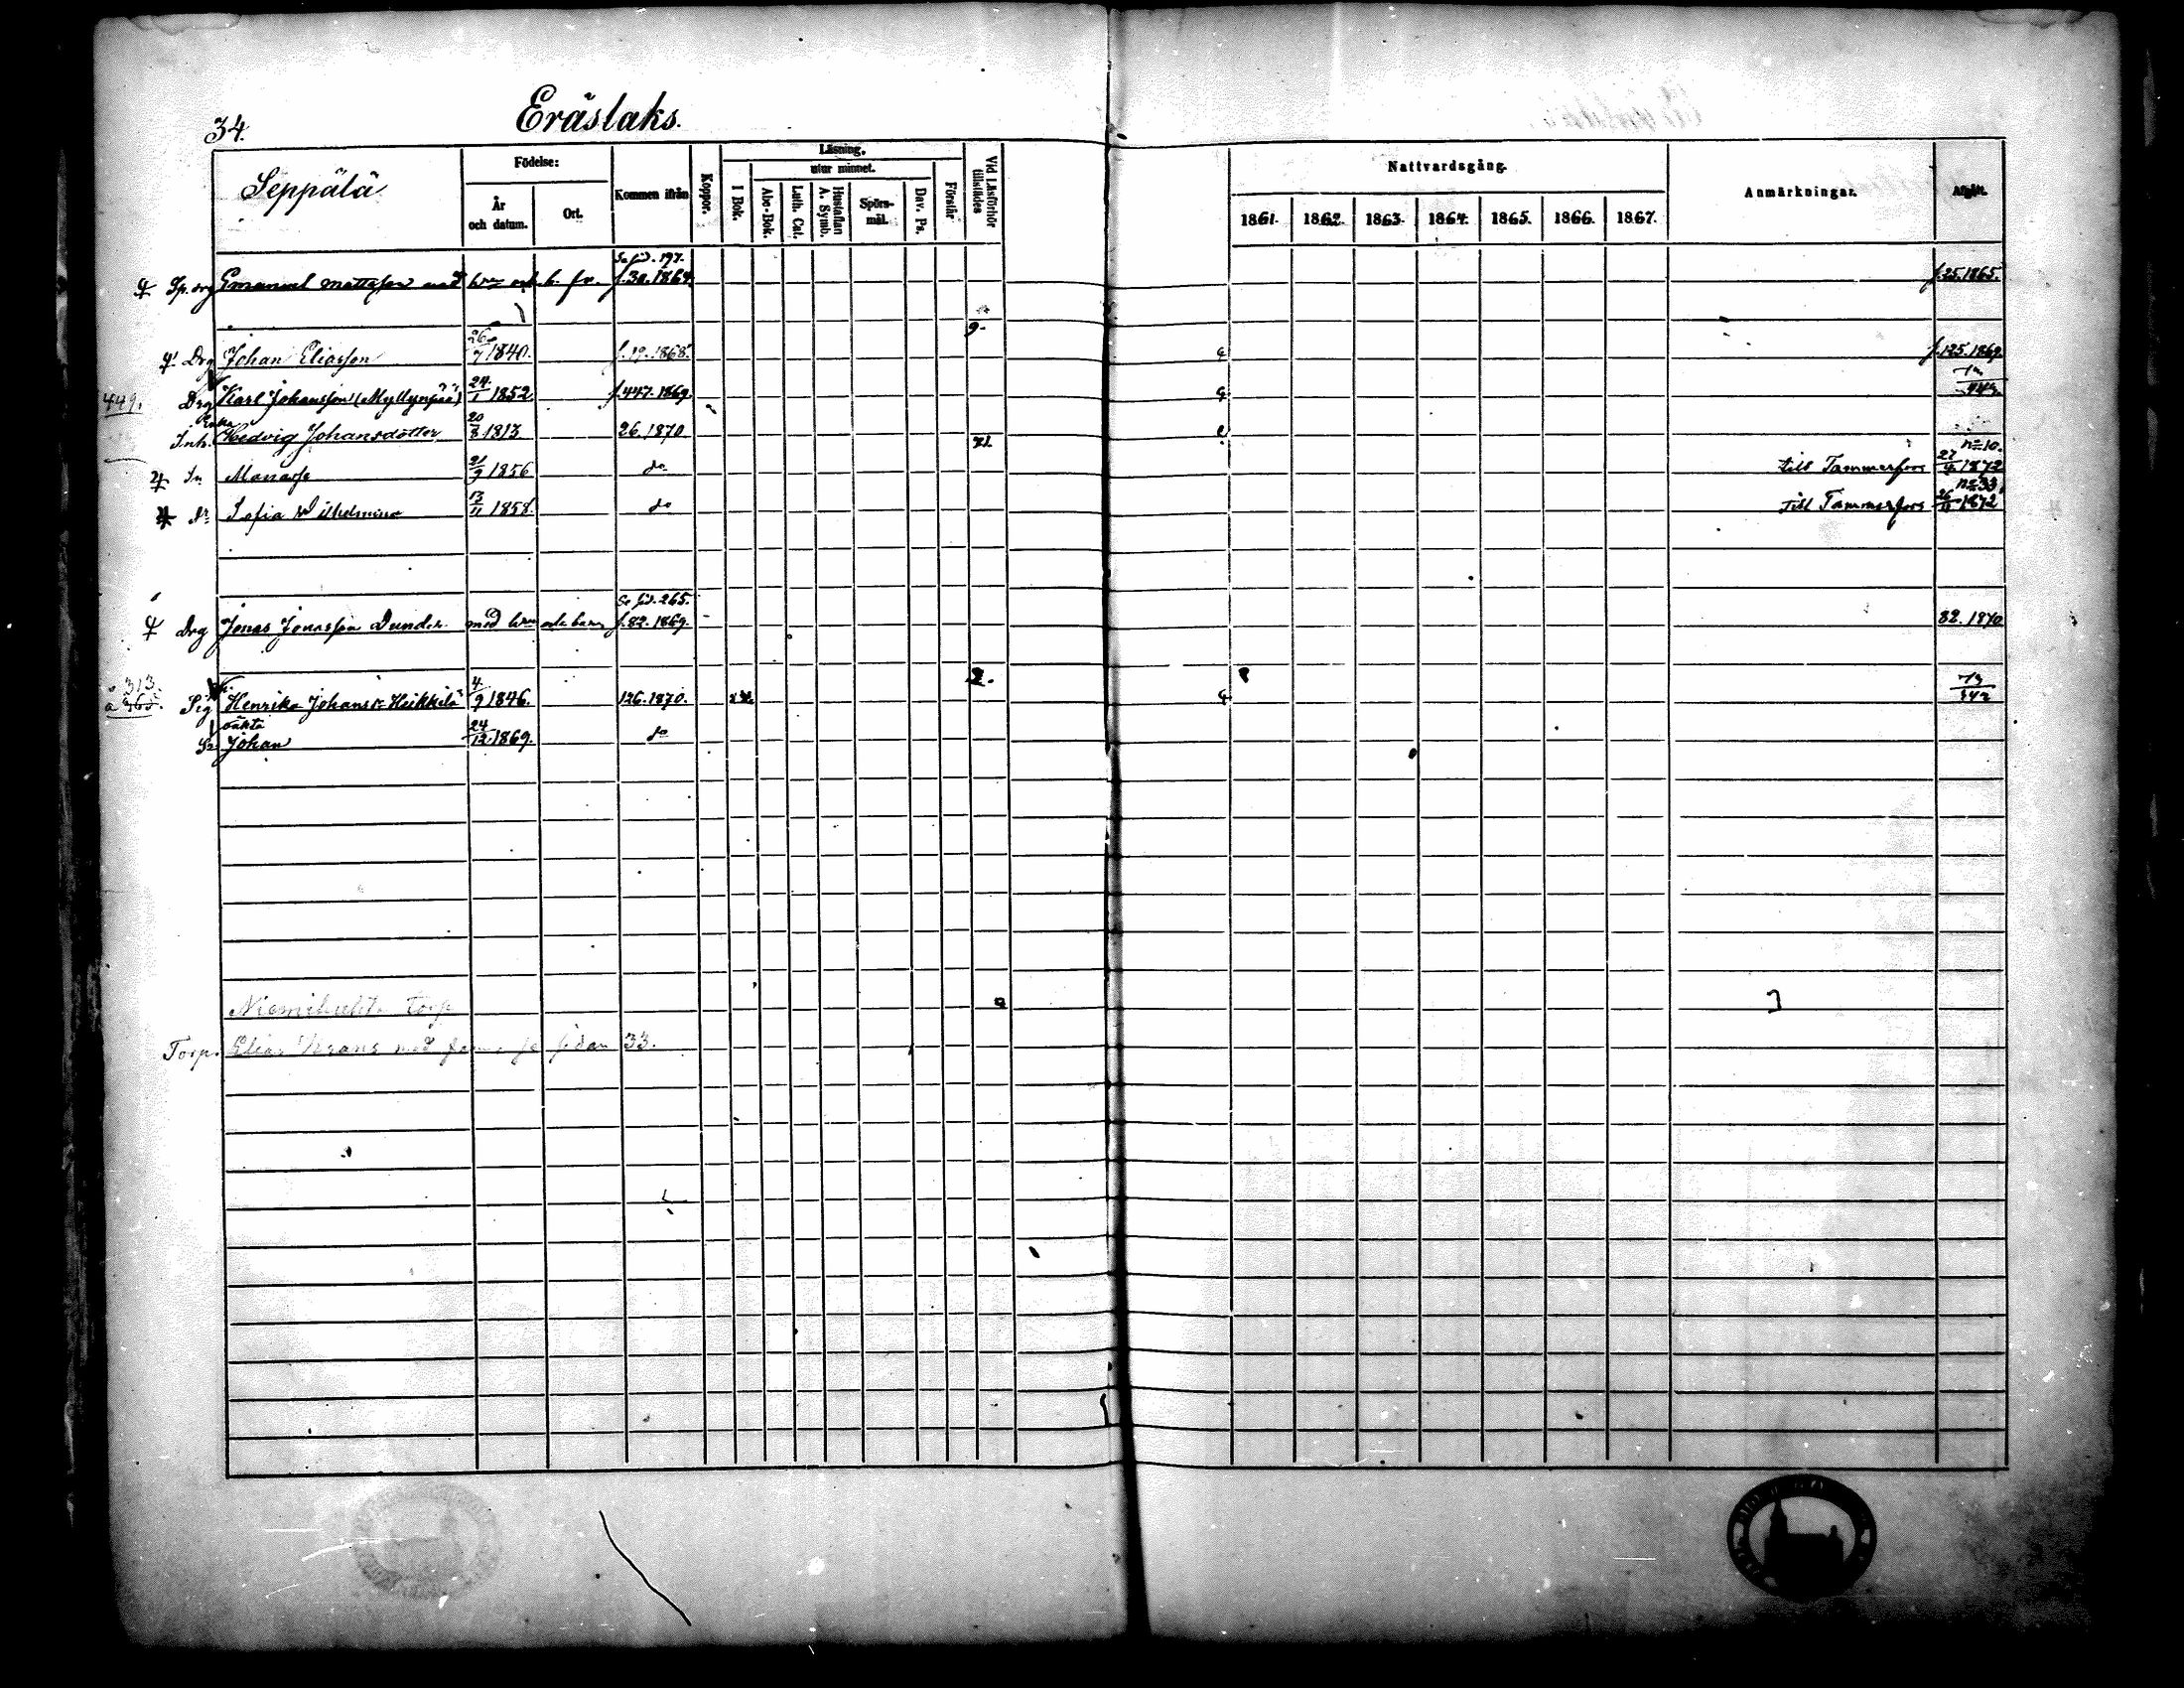 34.
Eräslaks.
Seppälä
Födelse:
År och datum.
Ort.
Kommen ifrån
Koppor.
Läsning.
I Bok.
utur minnet.
Abc-Bok.
Luth. Cat.
Hustaflan A. Symb.
Spörs-mål.
Dav. Ps.
Förstår
Vid Läsförhör tillstädes
Nattvardsgång.
1861. 1862. 1863. 1864. 1865. 1866. 1867.
Anmärkningar.
Afgått.
Se sid. 197.
Sp. drg Emanuel Mattsson med f. 30. 1864. f. 25. 1865.
Drg Johan Eliasson 26/7 1840. f. 19. 1868. f. 125. 1869.
449. Drg Karl Johansson (Myllynpää) 24/1 1852 f. 447. 1869.
Enka
Inh. Hedvig Johansdotter 20/8 1813 26. 1870
Sn Manasse 21/9 1856 do till Tammerfors 27/4 1872 n=10.
dr Sofia Wilhelmina 13/11 1858. do till Tammerfors 26/11 1872 n=33
Se sid. 265.
Drg Jonas Jonasson Dunder med hru och barn f. 82. 1869. 82. 1870
313.
Pig Henrika Johansdr Heikkilä 4/9 1846. 126. 1870.
oäkta
Sn Johan 24/12 1869. do
Torp
Torp. Elias med sidan 33.